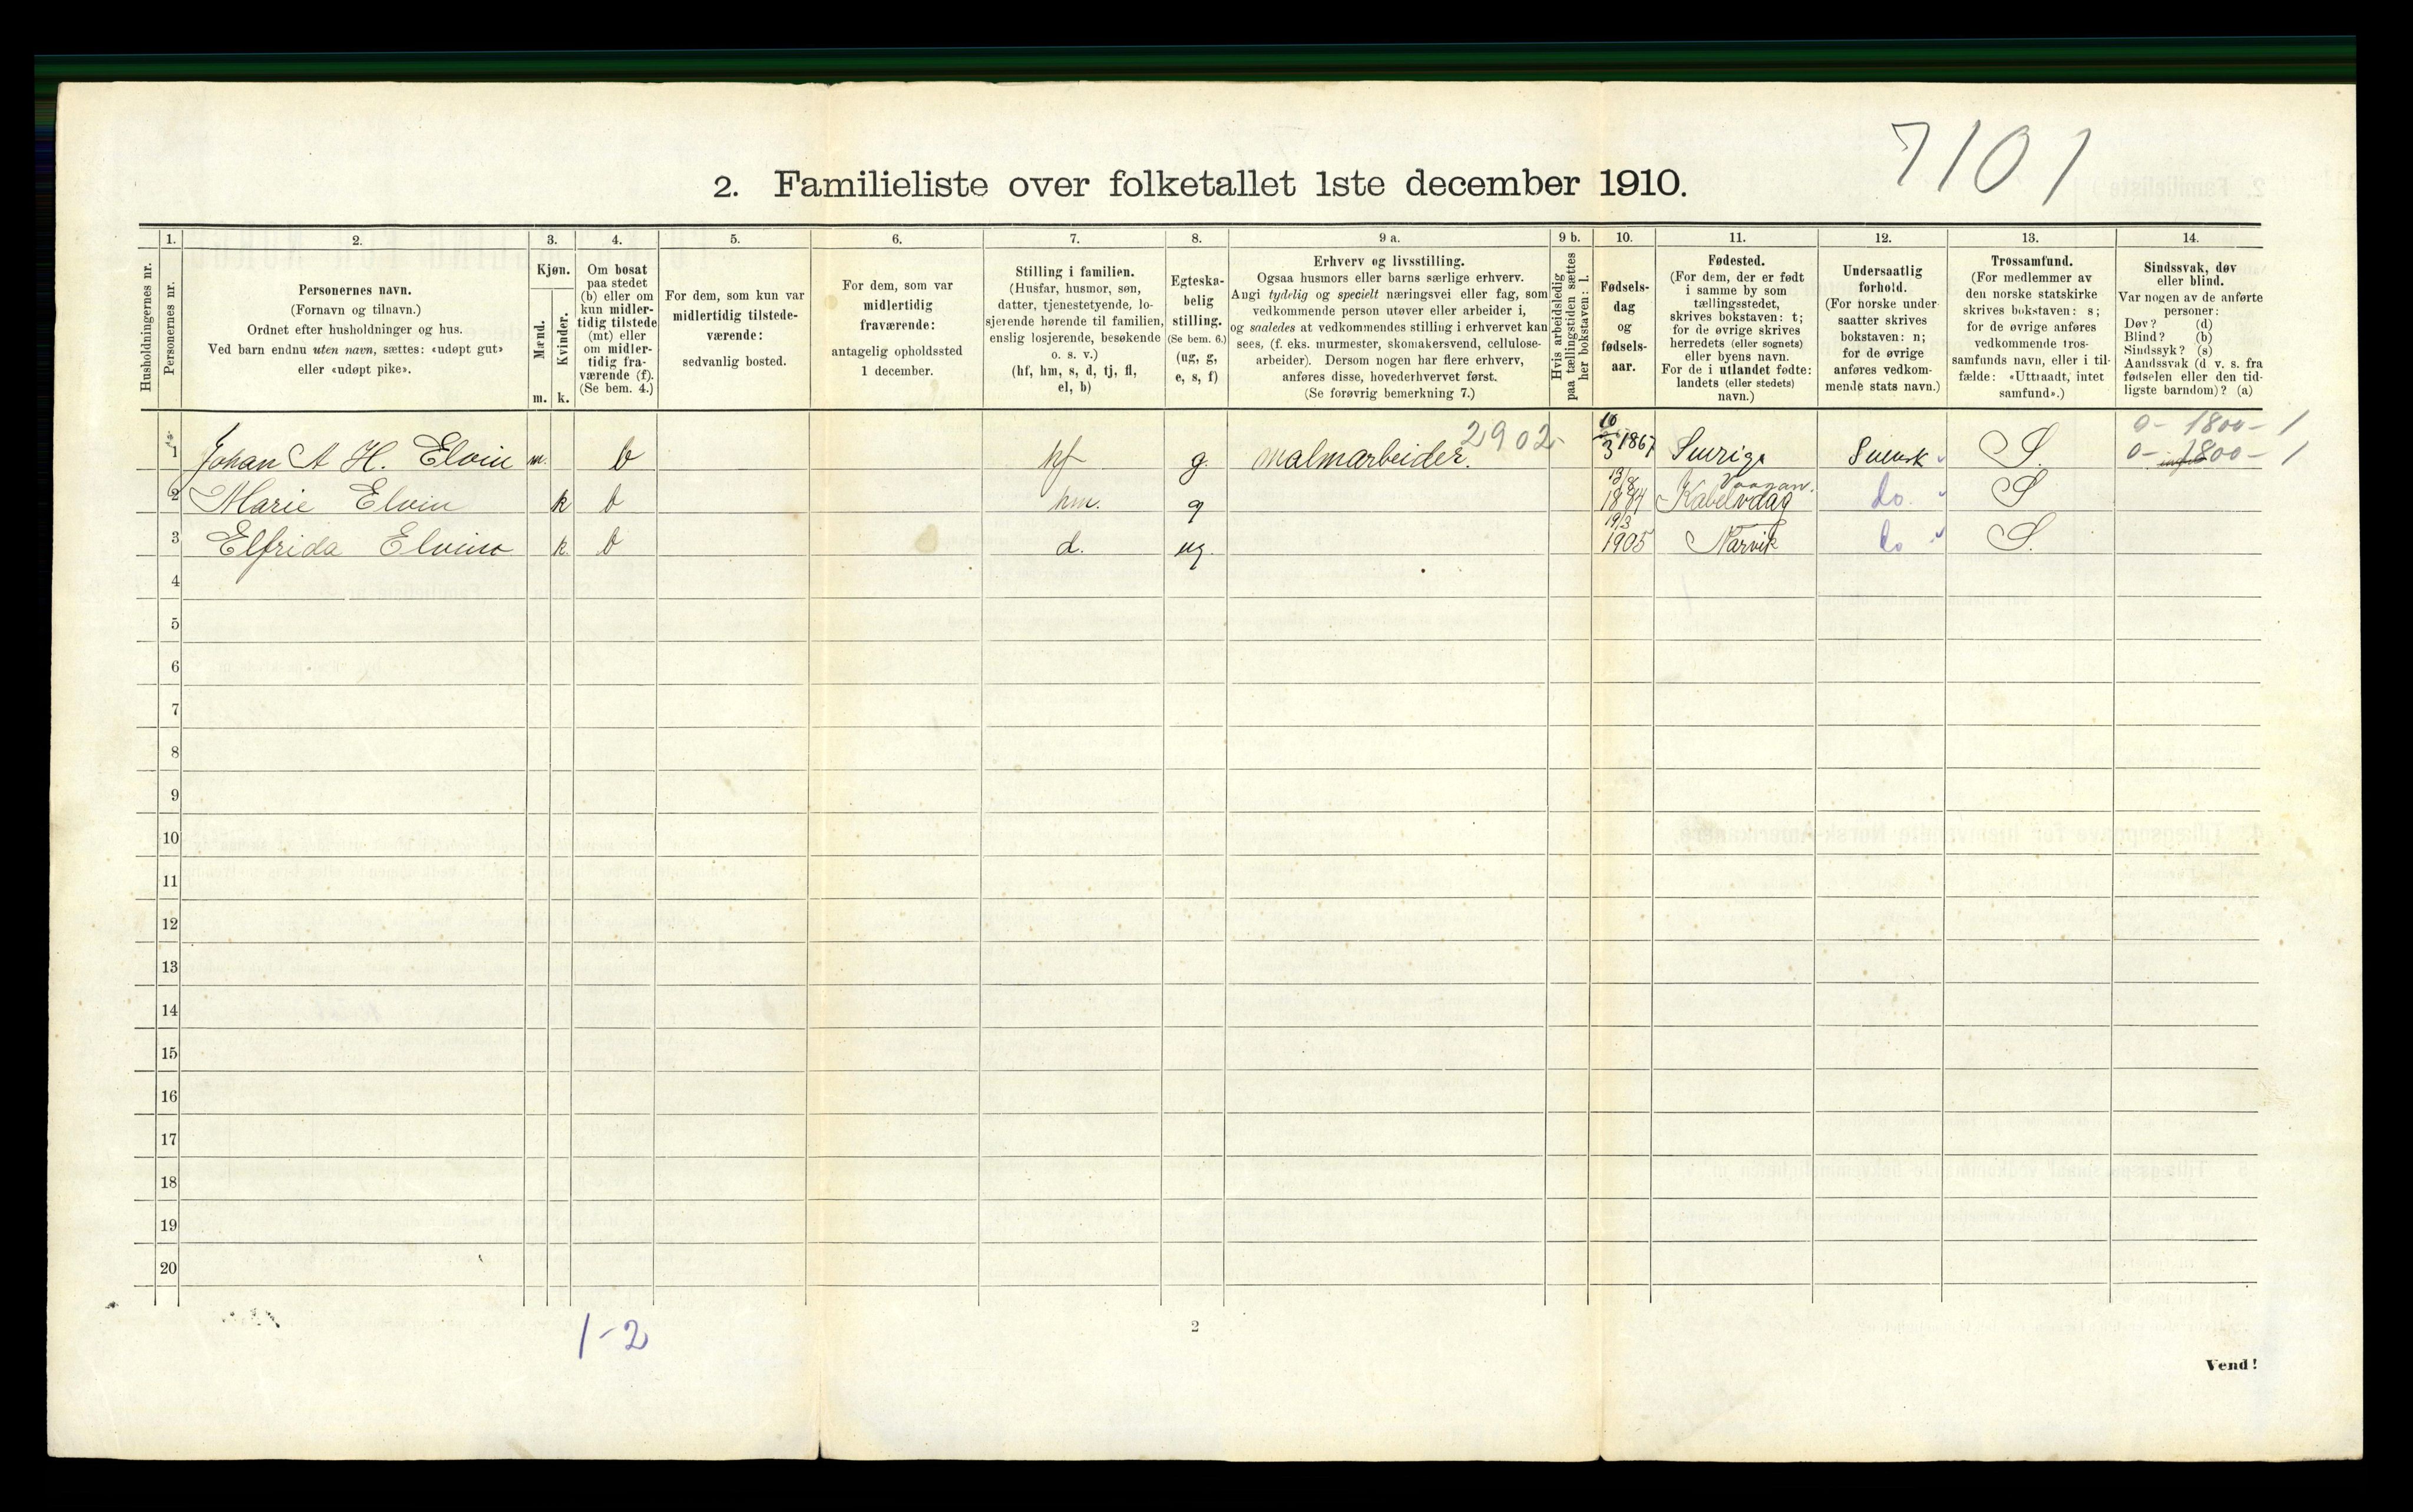 7101
2. Familieliste over folketallet 1ste december 1910.
Husholdningernes nr.
1.
Personernes nr.
2.
Personernes navn.
(Fornavn og tilnavn.)
Ordnet efter husholdninger og hus.
Ved barn endnu uten navn, sættes: «udøpt gut»
eller «udøpt pike».
3.
Kjøn.
Mænd.
Kvinder.
m. k.
4.
Om bosat
paa stedet
(b) eller om
kun midler-
tidig tilstede
(mt) eller
om midler-
tidig fra-
værende (f).
(Se bem. 4.)
5.
For dem, som kun var
midlertidig tilstede-
værende:
sedvanlig bosted.
6.
For dem, som var
midlertidig
fraværende:
antagelig opholdssted
1 december.
7.
Stilling i familien.
(Husfar, husmor, søn,
datter, tjenestetyende, lo-
sjerende hørende til familien,
enslig losjerende, besøkende
o. s. v.)
(hf, hm, s, d, tj, fl,
el, b)
8.
Egteska-
belig
stilling.
(Se bem. 6.)
(ug, g,
e, s, f)
9 a.
Erhverv og livsstilling.
Ogsaa husmors eller barns særlige erhverv.
Angi tydelig og specielt næringsvei eller fag, som
vedkommende person utøver eller arbeider i,
og saaledes at vedkommendes stilling i erhvervet kan
sees, (f. eks. murmester, skomakersvend, cellulose-
arbeider). Dersom nogen har flere erhverv,
anføres disse, hovederhvervet først.
(Se forøvrig bemerkning 7.)
9 b.
Hvis arbeidsledig
paa tællingstiden sættes
her bokstaven: l.
10.
Fødsels-
dag
og
fødsels-
aar.
11.
Fødested.
(For dem, der er født
i samme by som
tællingsstedet,
skrives bokstaven: t;
for de øvrige skrives
herredets (eller sognets)
eller byens navn.
For de i utlandet fødte:
landets (eller stedets)
navn.)
12.
Undersaatlig
forhold.
(For norske under-
saatter skrives
bokstaven: n;
for de øvrige
anføres vedkom-
mende stats navn.)
13.
Trossamfund.
(For medlemmer av
den norske statskirke
skrives bokstaven: s;
for de øvrige anføres
vedkommende tros-
samfunds navn, eller i til-
fælde: «Uttraadt, intet
samfund».)
14.
Sindssvak, døv
eller blind.
Var nogen av de anførte
personer:
Døv? (d)
Blind? (b)
Sindssyk? (s)
Aandssvak (d. v. s. fra
fødselen eller den tid-
ligste barndom)? (a)
2902- 0- 1800- 1
1 Johan A H. Elvin m. b hf g. malmarbeider. 10/3 1867 Sverige Svensk S. 0- 1800- 1
Vaagan.
2 Marie Elvin k b hm. g 13/8 1884 Kabelvdag do. S
3 Elfrida Elvin k. b d. ug. 19/3 1905 Narvik do S.
4
5
6
7
8
9
10
11
12
13
14
15
16
17
18
19
20
1-2
2
Vend!